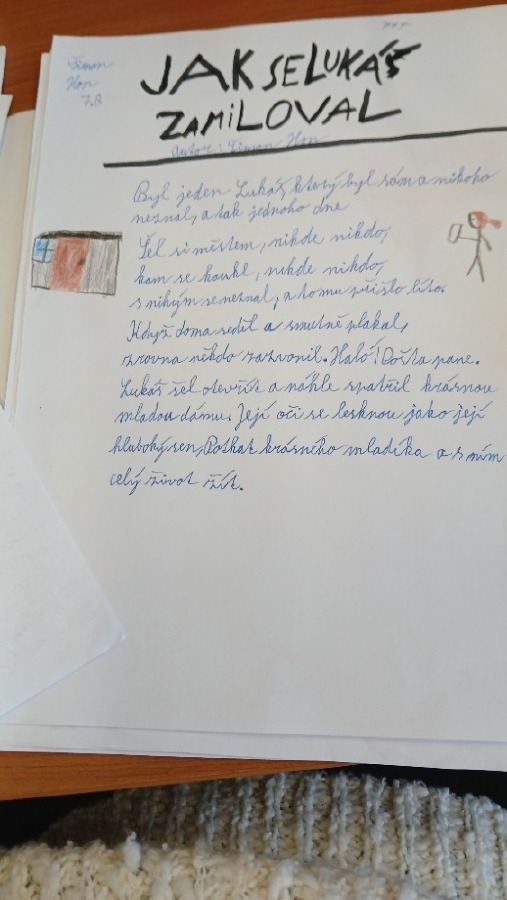 Šimon
Hon
7.B
JAK SE LUKÁŠ
ZAMILOVAL
Autor: Šimon Hon
Byl jeden Lukáš, který byl sám a nikoho
neznal, a tak jednoho dne
Šel si městem, nikde nikdo,
kam se koukl, nikde nikdo,
s nikým se neznal, a tomu přišlo líto.
Když doma seděl a smutně plakal,
zrovna někdo zazvonil. Haló! Pošta pane.
Lukáš šel otevřít a náhle spatřil krásnou
mladou dámu. Její oči se lesknou jako její
hluboký sen, Potkat krásného mladíka a s ním
celý život žít.